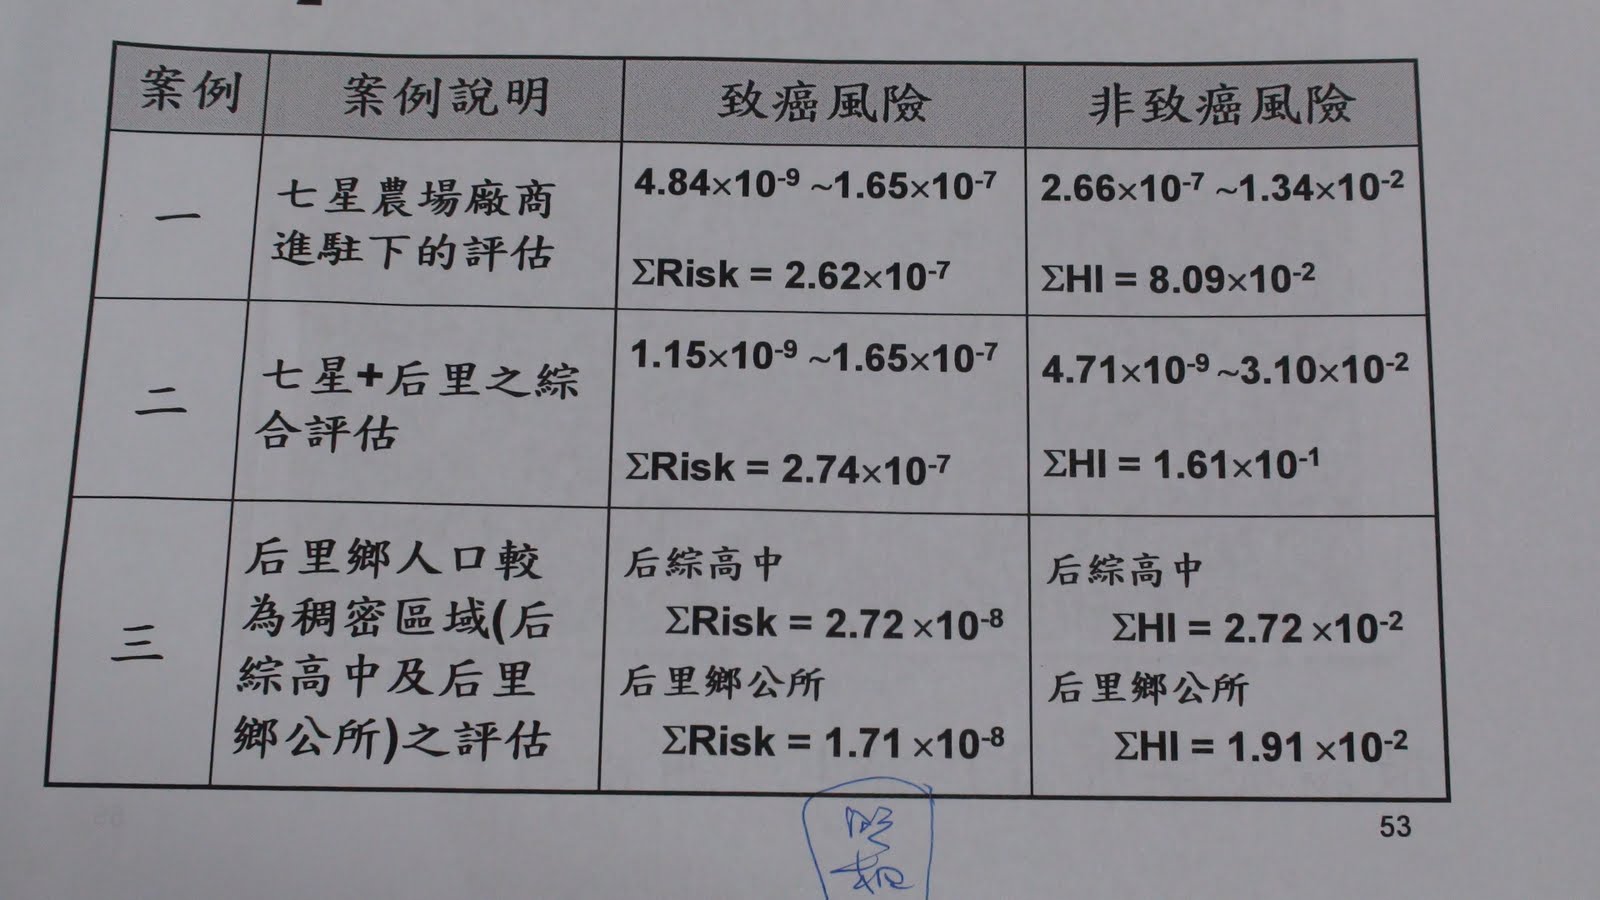 案例
案例說明
致癌風險
非致癌風險
一
七星農場廠商
進駐下的評估
4.84×10⁻⁹ ~1.65×10⁻⁷
ΣRisk = 2.62×10⁻⁷
2.66×10⁻⁷ ~1.34×10⁻²
ΣHI = 8.09×10⁻²
二
七星+后里之綜
合評估
1.15×10⁻⁹ ~1.65×10⁻⁷
ΣRisk = 2.74×10⁻⁷
4.71×10⁻⁹ ~3.10×10⁻²
ΣHI = 1.61×10⁻¹
三
后里鄉人口較
為稠密區域(后
綜高中及后里
鄉公所)之評估
后綜高中
ΣRisk = 2.72 ×10⁻⁸
后里鄉公所
ΣRisk = 1.71 ×10⁻⁸
后綜高中
ΣHI = 2.72 ×10⁻²
后里鄉公所
ΣHI = 1.91 ×10⁻²
53